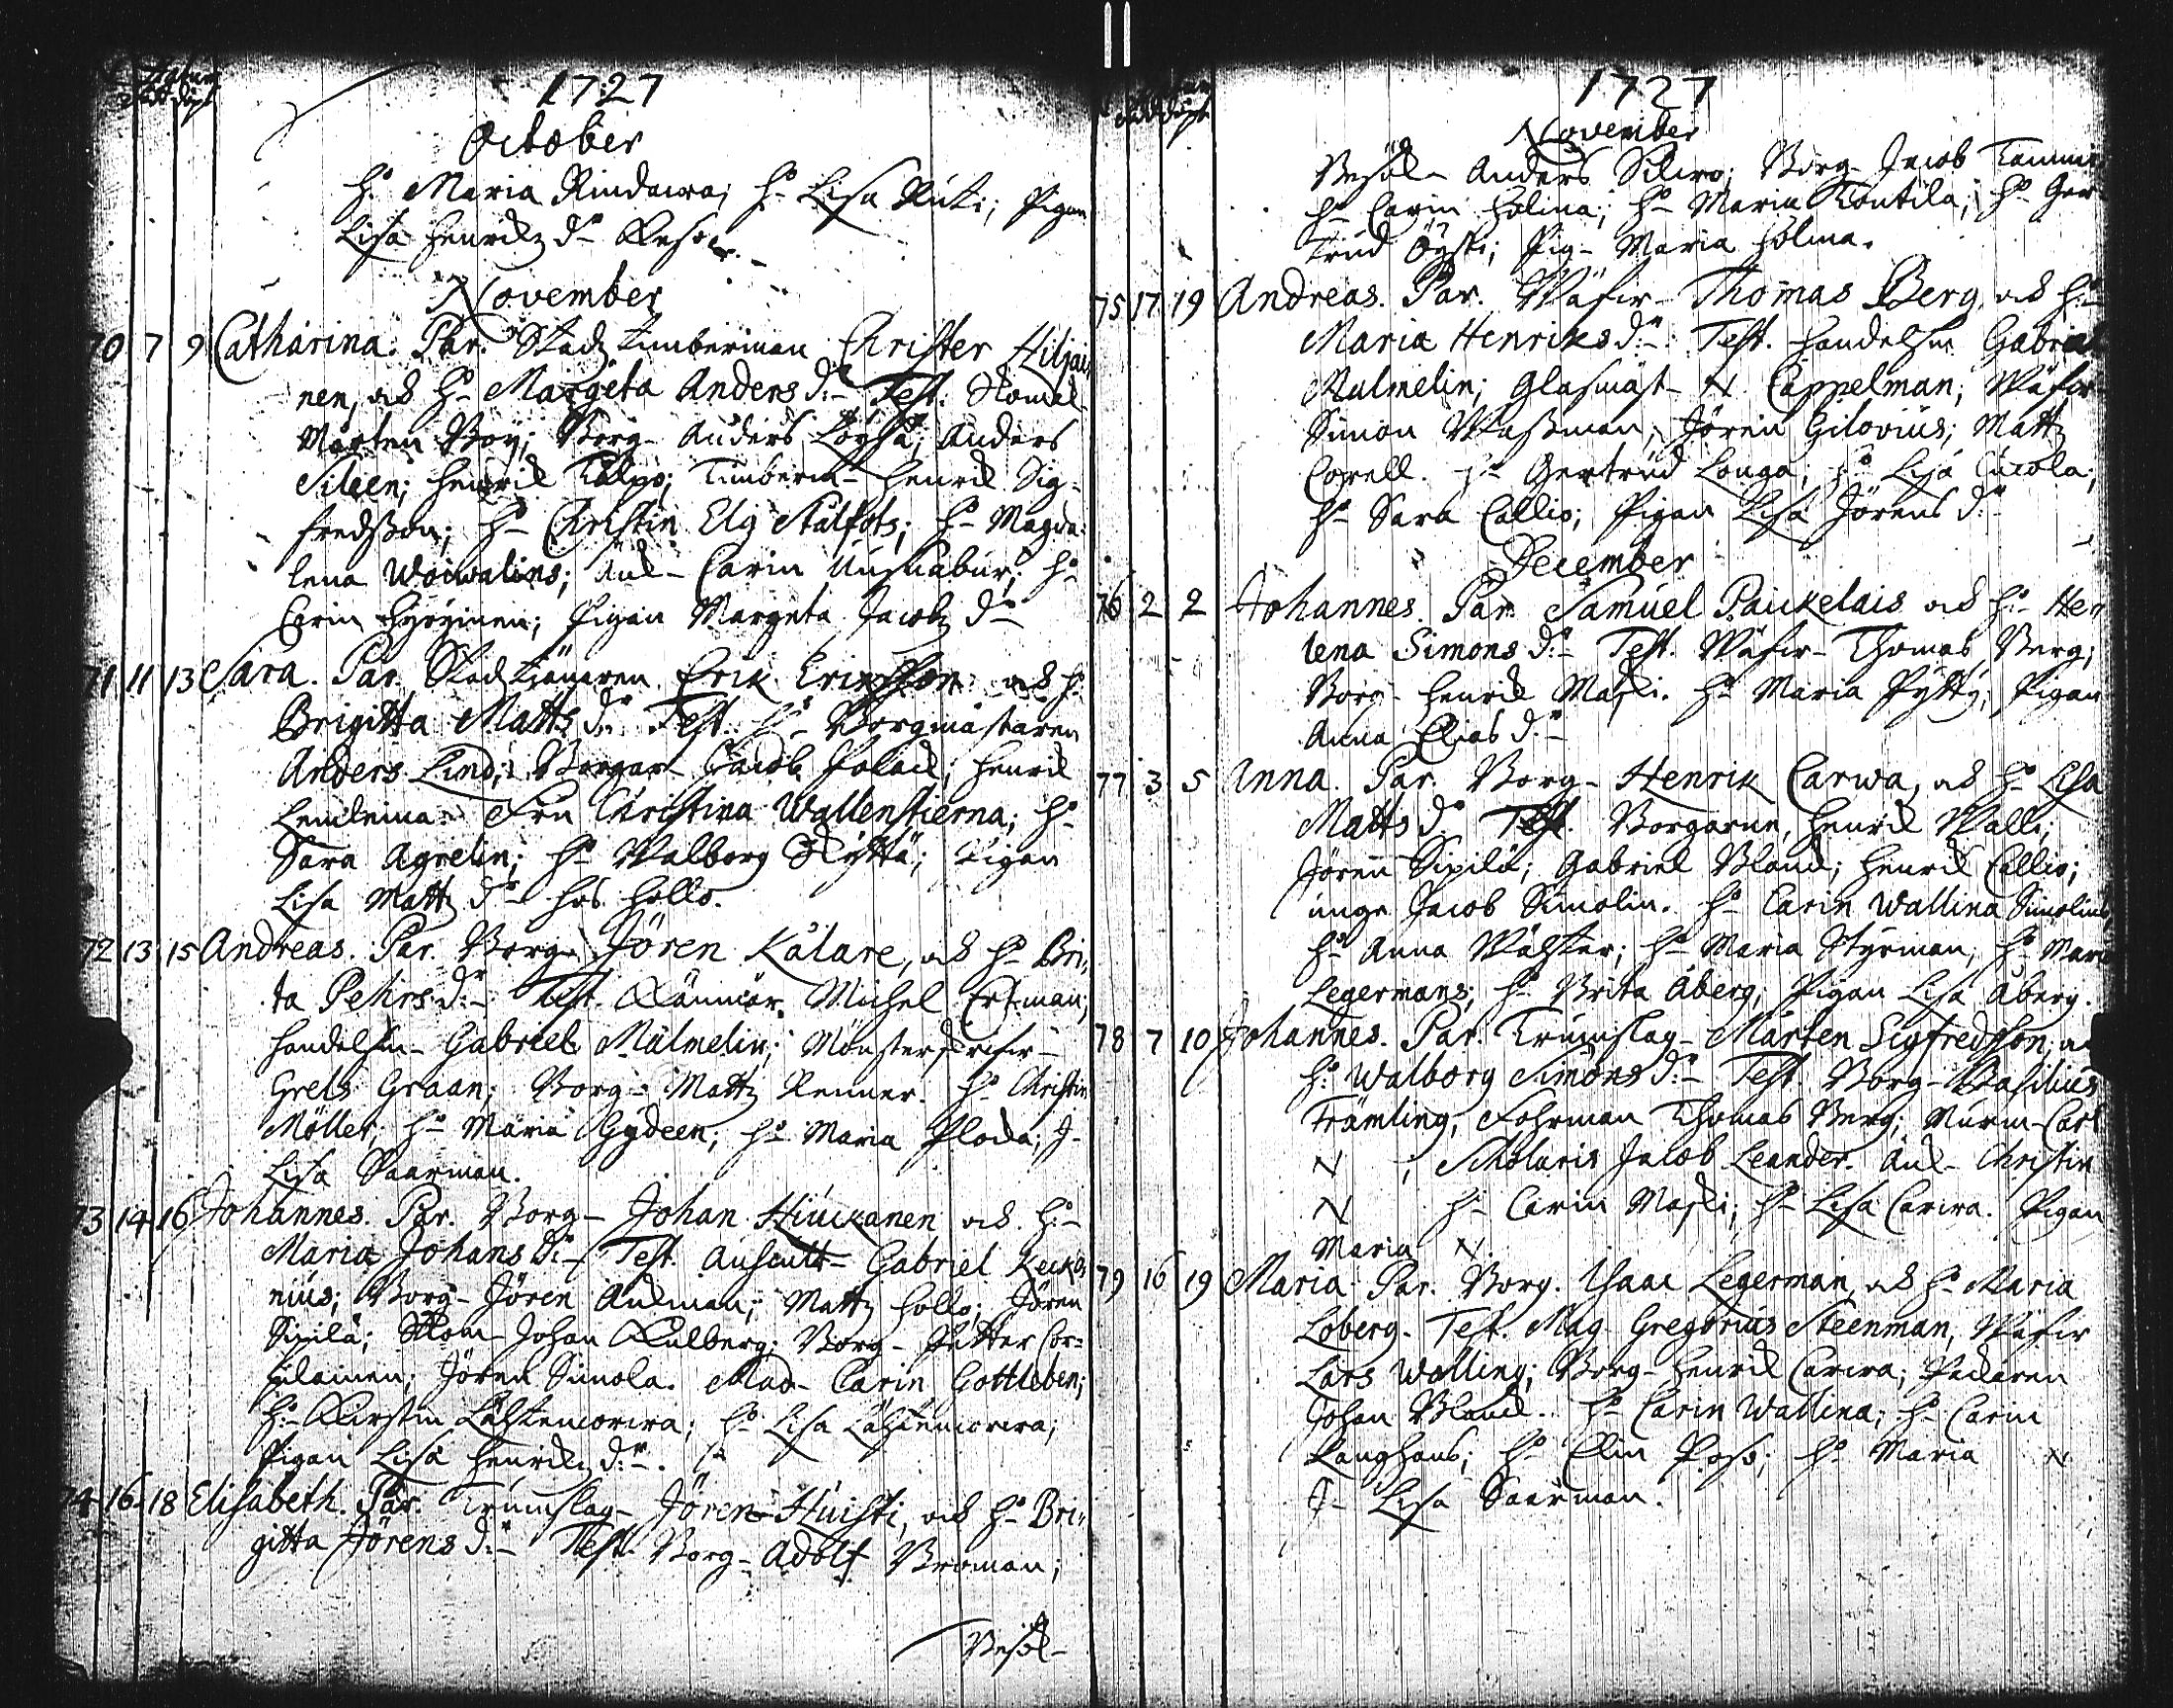 1727
October
H:o Maria Rindawa; H:o Lisa Pigan
Lisa Henrichz d:r
November
70 7 9 Catharina. Par. Stadz timberman Christer Hiljai
nen, och H:o Margeta Anders d:r Test.
Mårten Boy; Borg- Anders Löyhä; Anders
Sileen; Henrich Talpo; Timberm- Henrich Sig-
fredsson; H:o Christin Elg Stålfots; H:o Magda-
lena Woiwalins; Enk- Carin; H:o
Carin; Pigan Margeta Jacobz d:r
71 11 13 Sara. Par. Stadztjänaren Erik Erixsson och H:
Brigitta Matts d:r Test. H:r Borgmästaren
Anders Lind; Borgar- Jacob Polack; Henrich
Fru Christina Wallenstierna; H:o
Sara Agrelin; H:o Walborg; Pigan
Lisa Mattz d:r hos Hollo.
72 13 15 Andreas. Par. Borg- Jören Kålare, och H:o Bri„
ta Pehrs d:r Test. Michel Ertman;
Handelsm- Gabriel Malmelin; Mönsterskrifw-
Grels Graan; Borg- Mattz Renner. H:o Christin
Möller; H:o Maria Gydeen; H:o Maria Ploda; J-
Lisa Saarman.
73 14 16 Johannes. Par. Borg- Johan Hiuckanen och H:o
Maria Johans d:r Test. Auscult- Gabriel
nius; Borg- Jören Aulman; Mattz Hollo; Jören
Sipilä; Johan Kulberg; Borg- Petter Cor=
hilainen; Jören Simola. Mad- Carin Gottleben;
H:o Kirstin Lähtenkorwa; H:o Lisa Lähteenkorwa;
Pigan Lisa Henrichz d:r.
74 16 18 Elisabeth. Par. Trumslag- Jören Huisti, och H:o Bri„
gitta Jörens d:r Test. Borg- Adolf Broman;
Besök-
1727
November
Besök- Anders Silwo; Borg- Jacob
H:o Carin Holma; H:o Maria Kontila; H:o Ger-
trud Öysti; Pig- Maria Holma.
75 17 19 Andreas. Par. Wäfw- Thomas Berg, och H:o
Maria Henriks d:r Test. Handelsm Gabriel
Malmelin; Glasmäst- N. Cappelman; Wäfw-
Simon Wassman; Jören Gilovius; Mattz
Corell. H:o Gertrud Longa; H:o Lisa
H:o Sara Callio; Pigan Lisa Jörens d:r
December
76 2 2 Johannes. Par. Samuel Paickelais och H:o He„
lena Simons d:r Test. Wäfw- Thomas Berg;
Borg- Henrich Maski. H:o Maria Pytty; Pigan
Anna Elias d:r
77 3 5 Anna. Par. Borg- Henrik Carwa, och H:o Lisa
Matts d:r Test. Borgarne, Henrich Walli;
Jören Sipilä; Gabriel Blanck; Henrich Callio;
unge Jacob Simolin. H:o Carin Wallina Simolins,
H:o Anna; H:o Maria Styrman; H:o Maria
Legermans; H:o Brita Åberg; Pigan Lisa Åberg.
78 7 10 Johannes. Par. Trumslag- Mårten Sigfredsson, och
H:o Walborg Simons d:r Test. Borg- Basilius
Främling, Fohrman Thomas Berg; Murm- Carl
N ; Scholaris Jacob Leander. Enk- Christin
N H:o Carin Maski; H:o Lisa Carwa. Pigan
Maria N
79 16 19 Maria. Par. Borg. Isaac Legerman, och H:o Maria
Löberg. Test. Mag. Gregorius Steenman, Wäfw
Lars Walling; Borg- Henrich Carwa; Packaren
Johan Blanck. H:o Carin Wallina; H:o Carin
Langhans; H:o Elin Poso; H:o Maria N
J- Lisa Saarman.